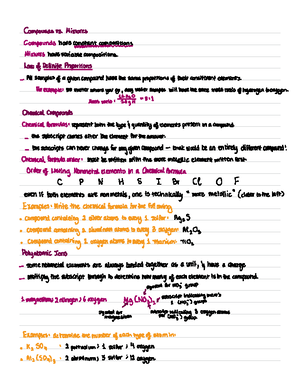 Compounds vs. Mixtures
Compounds have constant compositions
Mixtures have variable compositions.
Law of Definite Proportions
— All samples of a given compound have the same proportions of their constituent elements.
For example: No matter where you go, any water samples will have the same mass ratio of hydrogen to oxygen.
Mass ratio = = 8:1
Chemical Compounds
Chemical formulas: represent both the type & quantity of elements present in a compound
— the subscript comes after the element for the amount
— the subscripts can never change for any given compound - that would be an entirely different compound!
Chemical formula order: must be written with the more metallic elements written first
Order of Listing Nonmetal elements in a Chemical Formula
C P N H S I Br Cl O F
even if both elements are nonmetals, one is technically "more metallic" (closer to the left)
Examples: Write the chemical formula for the following
• compound containing 2 silver atoms to every 1 sulfur: Ag2S
• compound containing 2 aluminum atoms to every 3 oxygen: Al2O3
• compound containing 2 oxygen atoms to every 1 titanium: TiO2
Polyatomic Ions
— some nonmetal elements are always bonded together as a unit, & have a charge
— multiply the subscript through to determine how many of each element is in the compound.
symbol for NO3 group
1 magnesium; 2 nitrogen; 6 oxygen Mg(NO3)2
subscript indicating there's 2 (NO3) groups
symbol for magnesium
subscript indicating 3 oxygen atoms per (NO3) group
Examples: determine the number of each type of atom in:
• K2SO4 = 2 potassium; 1 sulfur; 4 oxygen
• Al2(SO4)3 = 2 aluminum; 3 sulfur; 12 oxygen